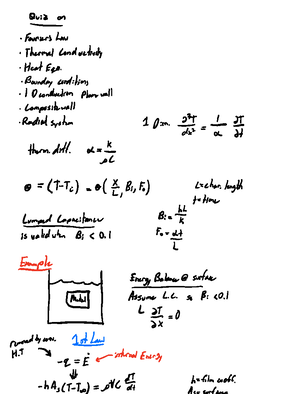 Quiz on
· Fouriers Law
· Thermal Conductivity
· Heat Eqn.
· Boundary conditions
· 1 D conduction Plane wall
· Composite wall
· Radial system
1 Dim. ∂²T/∂x² = 1/α ∂T/∂t
therm. diff. α = k/ρC
θ = (T-T_c) = θ(X/L, Bi, Fo)
L=char. length
t=time
Bi = hL/k
Fo = αt/L
Lumped Capacitance
is valid when Bi < 0.1
Example
Metal
Energy Balance @ surface
Assume L.C. so Bi <0.1
L ∂T/∂x = 0
removed by conv.
H.T
1st Law
-q = Ė
internal Energy
-hAs(T-T∞) = ρVC dT/dt
h=film coeff.
As=surface